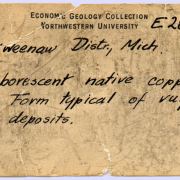 ECONOMIC GEOLOGY COLLECTION
NORTHWESTERN UNIVERSITY
E 26
weenaw Distr., Mich.
borescent native copp
Form typical of vu
deposits.